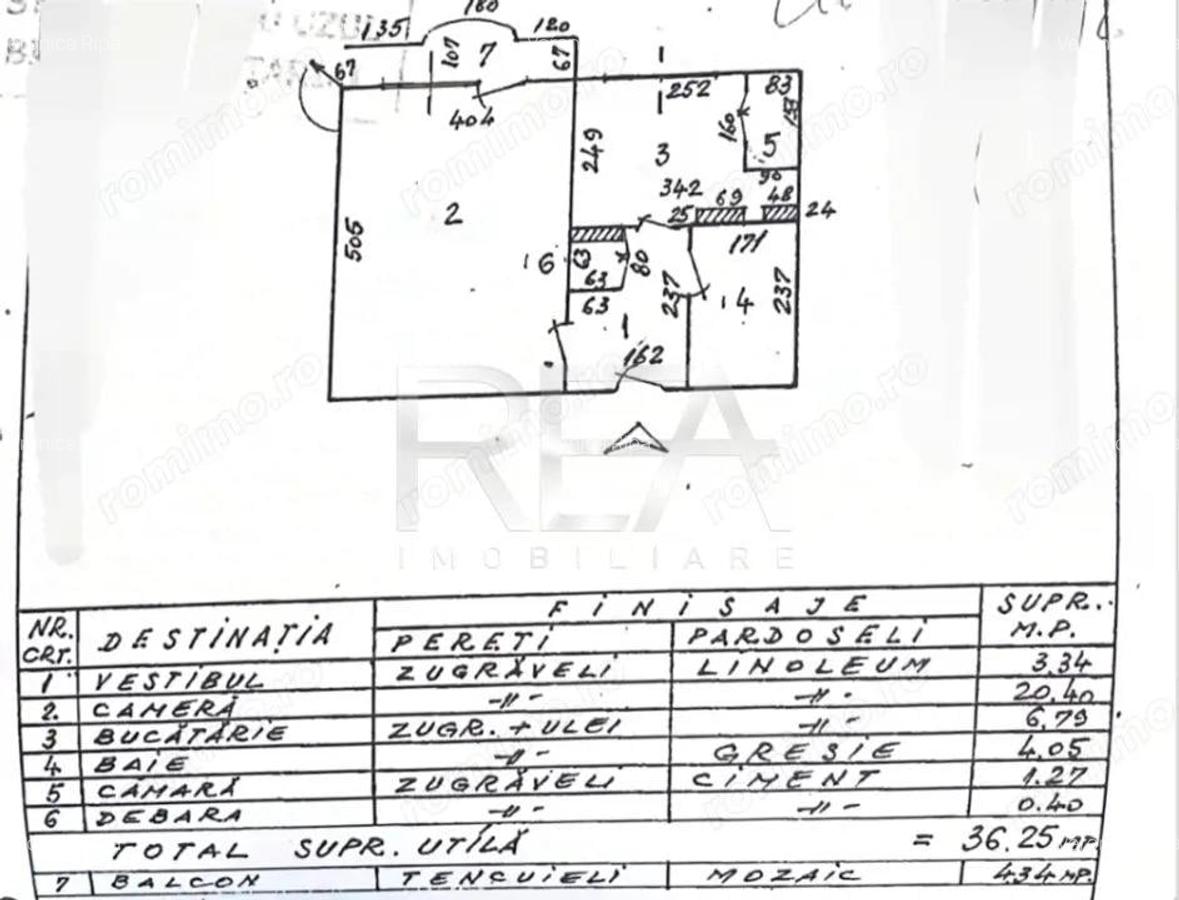 160
135
120
107
7
67
67
404
249
252
83
160
5
90
3
342
69
48
25
24
171
2
505
6
63
80
63
63
237
4
237
1
162
REA
IMOBILIARE
romimo.ro
NR. CRT.
DESTINAȚIA
FINISAJE
PEREȚI
PARDOSELI
SUPR. M.P.
1 VESTIBUL ZUGRĂVELI LINOLEUM 3,34
2. CAMERĂ -"- -"- 20,40
3 BUCĂTĂRIE ZUGR. + ULEI -"- 6,79
4 BAIE -"- GRESIE 4,05
5 CĂMARĂ ZUGRĂVELI CIMENT 1.27
6 DEBARA -"- -"- 0.40
TOTAL SUPR. UTILĂ = 36.25 MP.
7 BALCON TENCUIELI MOZAIC 4.34 MP.